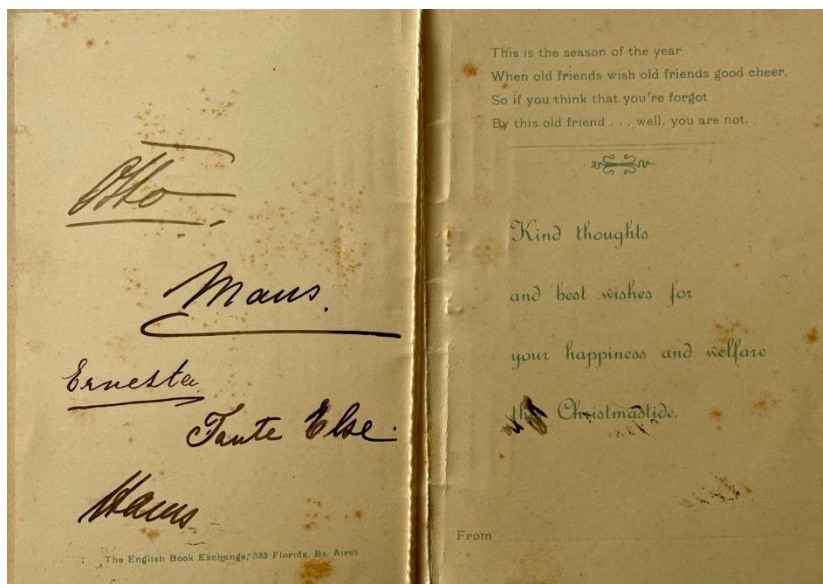 Otto
Maus.
Ernesta
Tante Else.
Hans
The English Book Exchange, 333 Florida, Bs. Aires
This is the season of the year
When old friends wish old friends good cheer,
So if you think that you're forgot
By this old friend . . . well, you are not.
Kind thoughts
and best wishes for
your happiness and welfare
this Christmastide.
From